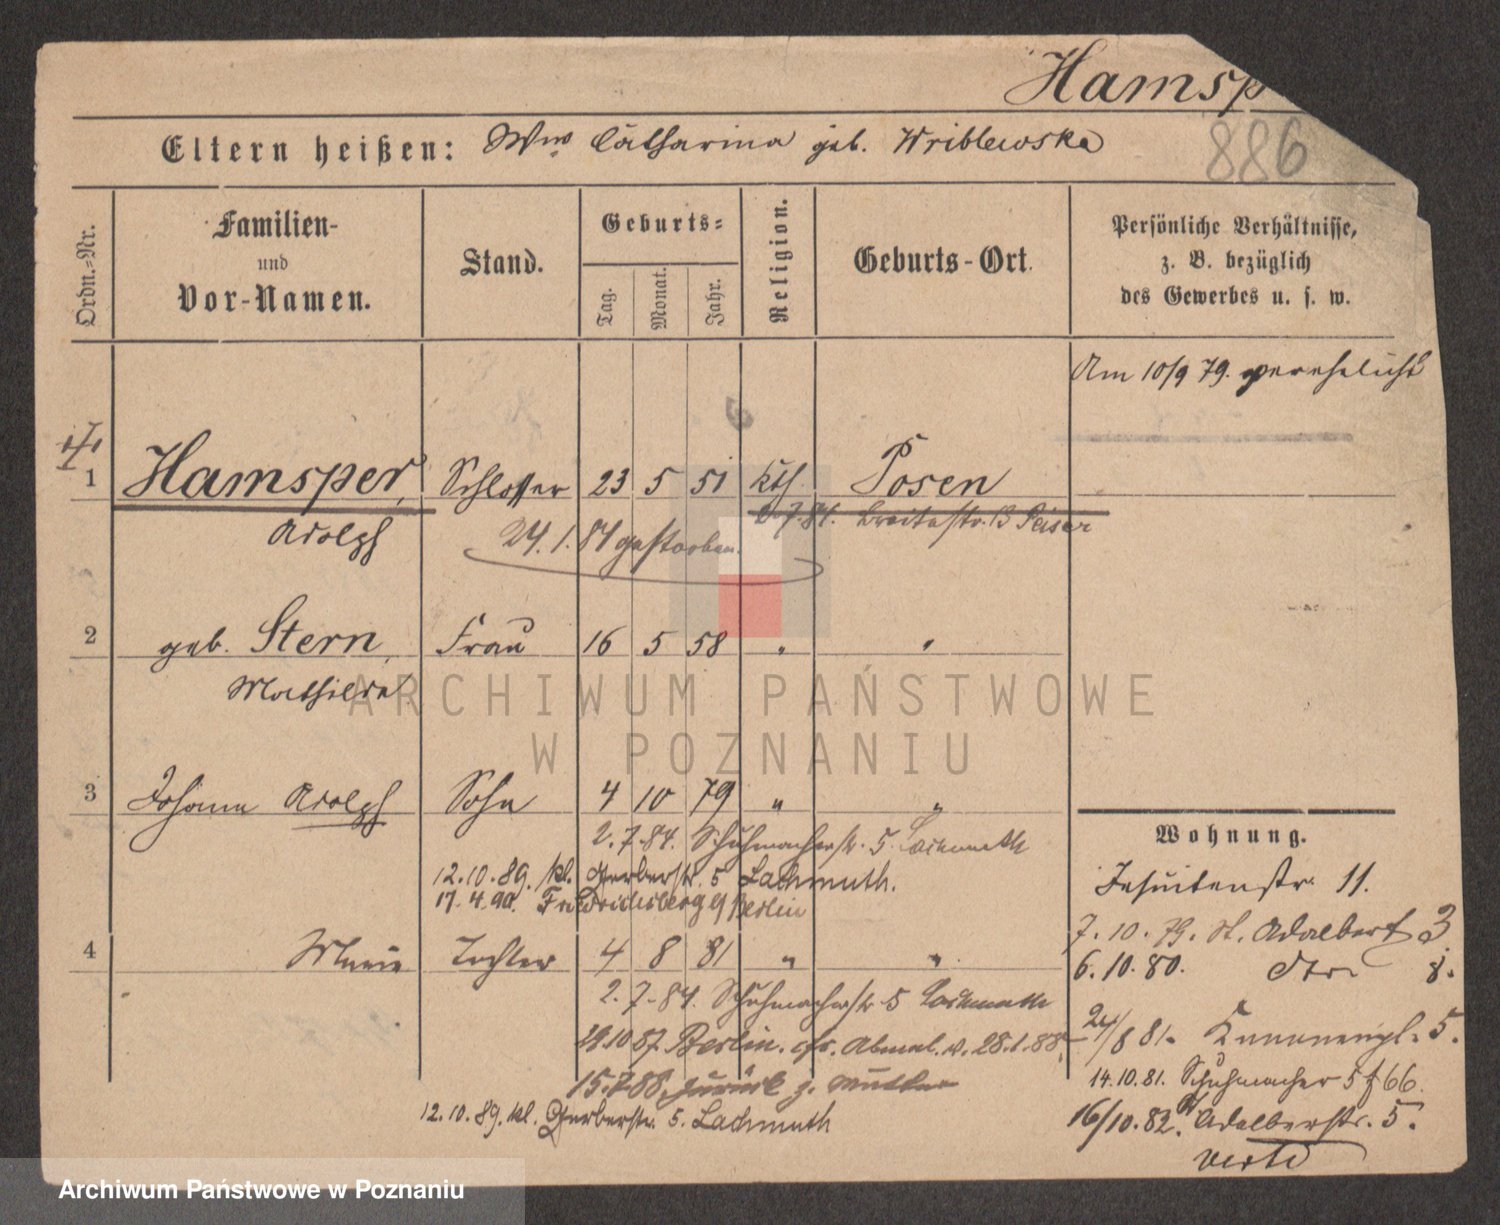 Hamsp
886
Eltern heißen: Wwe Catharina geb. Wriblewska
Ordn.-Nr.
Familien-
und
Vor-Namen.
Stand.
Geburts-
Tag.
Monat.
Jahr.
Religion.
Geburts-Ort.
Persönliche Verhältnisse,
z. B. bezüglich
des Gewerbes u. s. w.
Am 10/9 79. verehelicht
1 Hamsper, Schlosser 23 5 51 kth. Posen
2.7.84. Breitestr. 13 Peiser
Adolph
24.1.84 gestorben.
2 geb. Stern, Frau 16 5 58 " "
Mathilde
3 Johann Adolph Sohn 4 10 79 " "
2.7.84. Schuhmacherstr. 5 Lachmuth
12.10.89. kl. Gerberstr. 5 Lachmuth.
17.4.90. Friedrichsberg b/Berlin
4 Marie Tochter 4 8 81 " "
2.7.84. Schuhmacherstr 5 Lachmuth
29.10 87. Berlin. cfr. Abmel. v. 28.1.88.
15.7.88. zurück z. Mutter
12.10.89. kl. Gerberstr. 5. Lachmuth
Wohnung.
Jesuitenstr. 11.
7.10.79. St. Adalbert 3
6.10.80. dto 8.
24/8 81. 5.
14.10.81. Schuhmacher 5 f 66.
16/10.82. St Adalbertstr. 5.
verte
ARCHIWUM PAŃSTWOWE
W POZNANIU
Archiwum Państwowe w Poznaniu